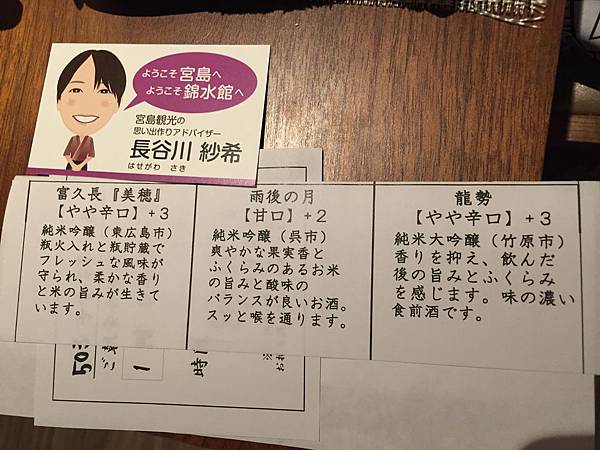 ようこそ 宮島へ
ようこそ 錦水館へ
宮島観光の
思い出作りアドバイザー
長谷川 紗希
はせがわ さき
富久長『美穂』
【やや辛口】+3
純米吟醸（東広島市）
瓶火入れと瓶貯蔵で
フレッシュな風味が
守られ、柔かな香り
と米の旨みが生きて
います。
雨後の月
【甘口】+2
純米吟醸（呉市）
爽やかな果実香と
ふくらみのあるお米
の旨みと酸味の
バランスが良いお酒。
スッと喉を通ります。
龍勢
【やや辛口】+3
純米大吟醸（竹原市）
香りを抑え、飲んだ
後の旨みとふくらみ
を感じます。味の濃い
食前酒です。
503
ご
1
時
※